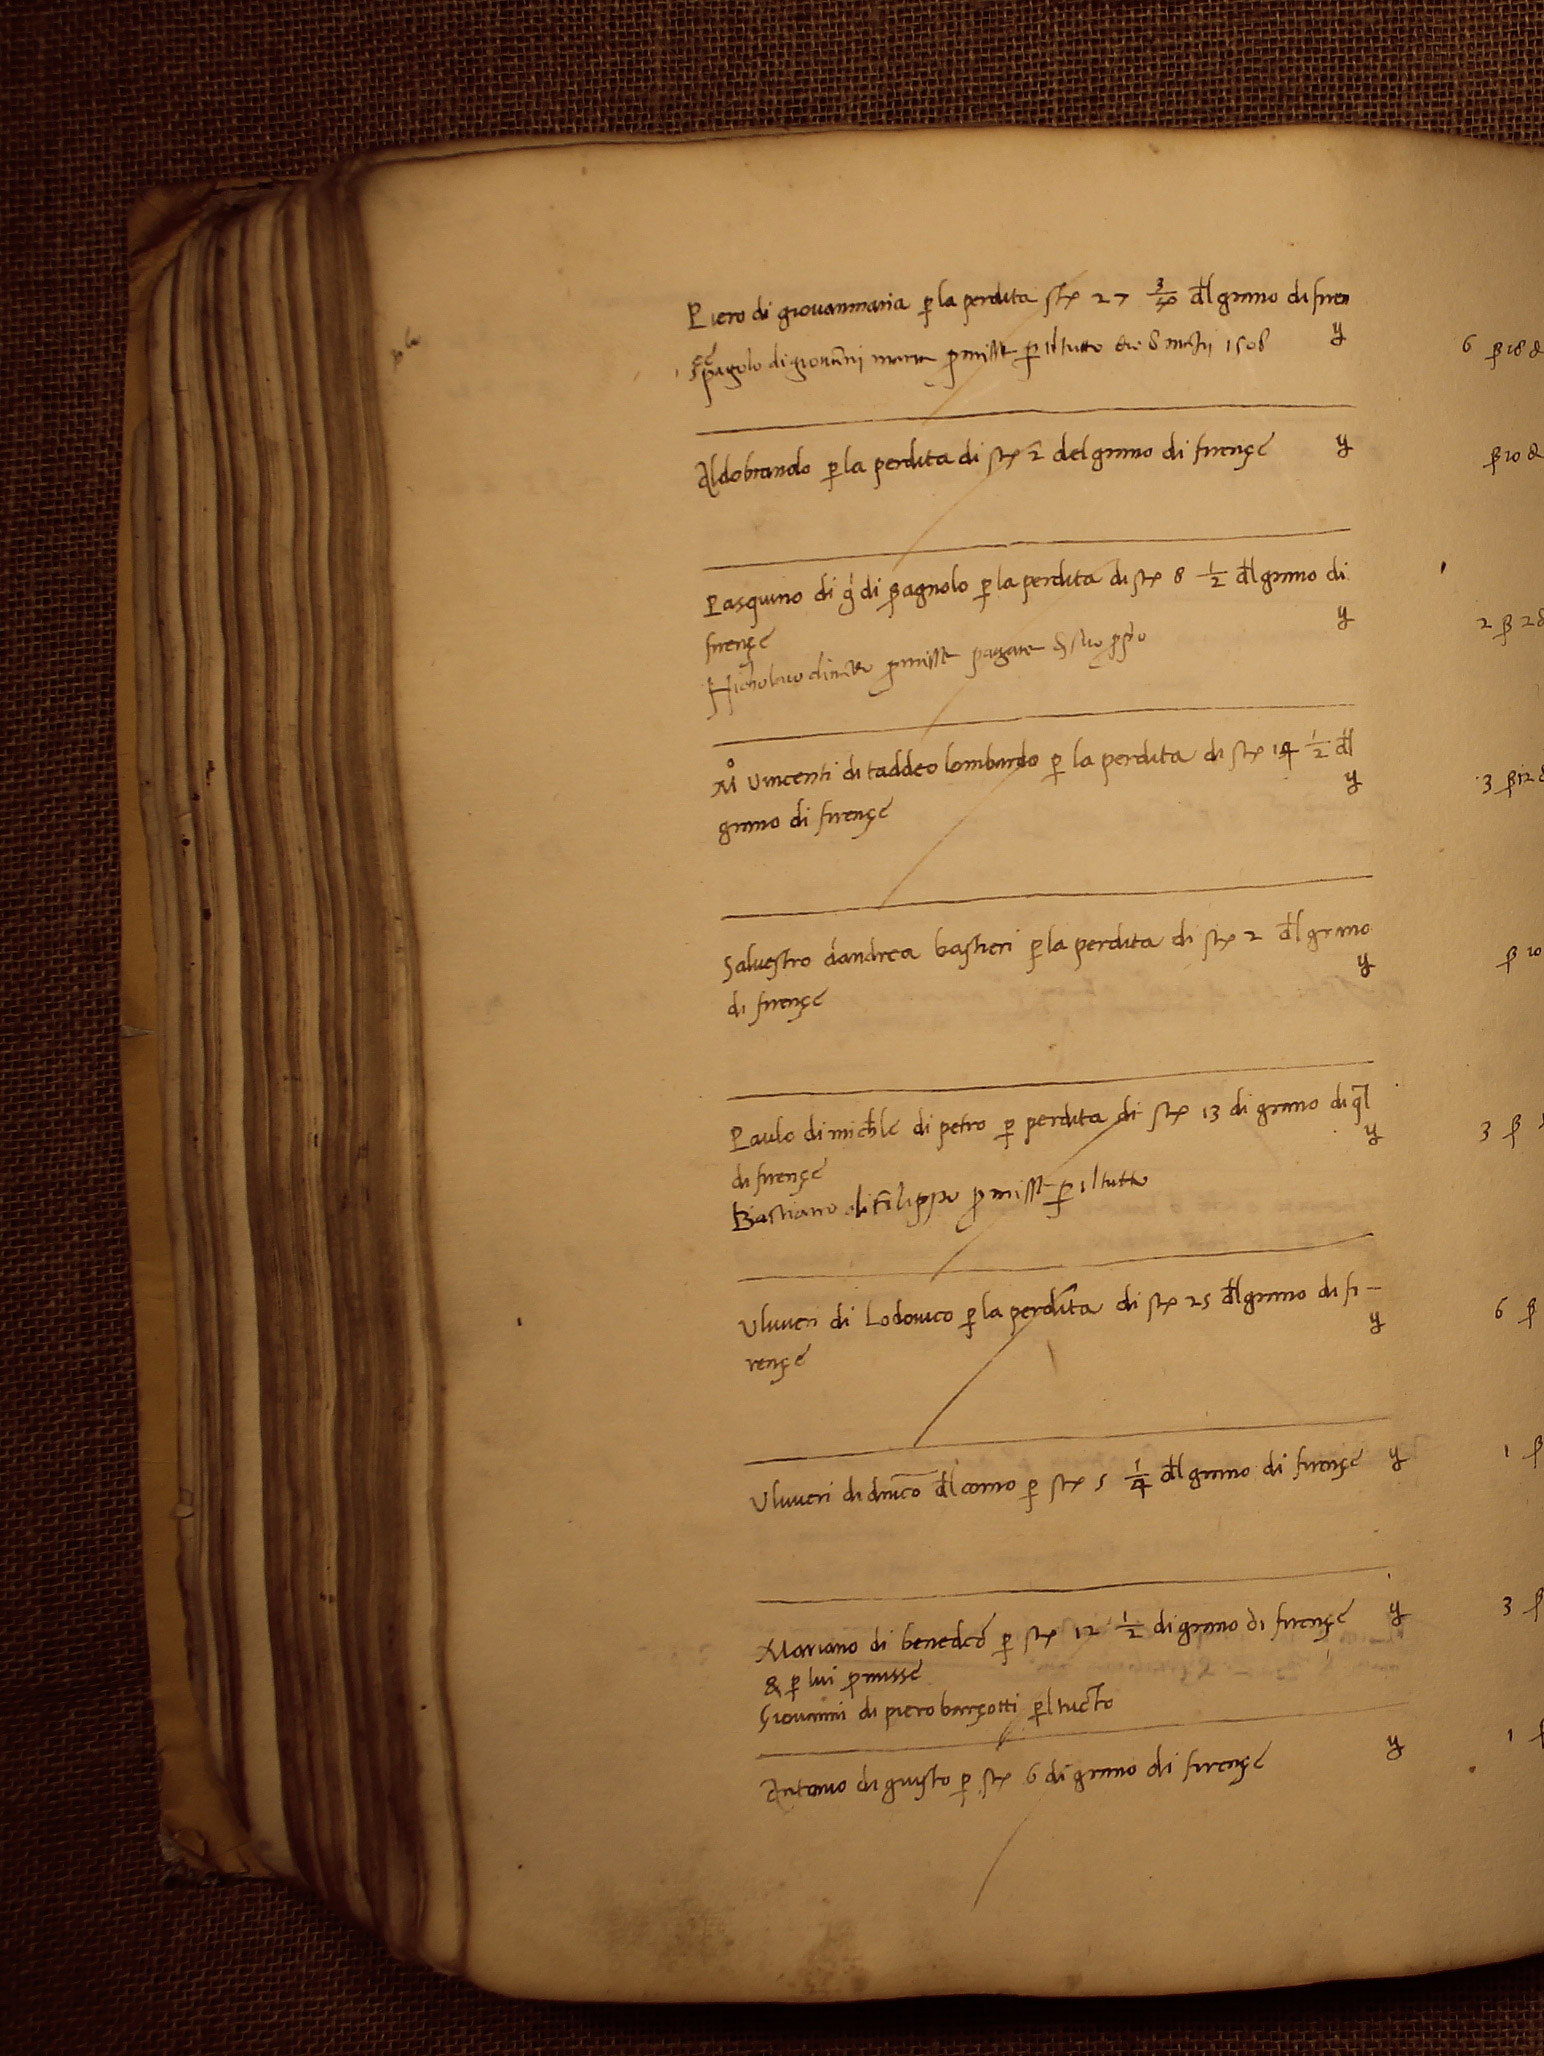 Piero di giovanmaria p la perdita stx 27 3/40 dl grano di firen
pagolo di giovãni maria pmisse p il tutto 8 1508 y 6 β 18
Aldobrando p la perdita di stx 2 del grano di firençe y β 10
Pasquino di g di pagnolo p la perdita di stx 8 1/2 dl grano di
firençe y 2 β 2
Nicholaio pmisse pagare
Mº Vincenti di taddeo lombardo p la perdita di stx 14 1/2 dl
grano di firençe y 3 β 12
Salvestro dandrea bastieri p la perdita di stx 2 dl grano
di firençe y β 10
Paulo di michele di petro p perdita di stx 13 di grano di ql
di firençe y 3 β
Bastiano di filippo pmisse p il tutto
Uliveri di Lodovico p la perdita di stx 25 dl grano di fi-
rençe y 6 β
Uliveri di dl corno p stx 5 1/4 dl grano di firençe y 1 β
Mariano di benedcõ p stx 12 1/2 di grano di firençe y 3 β
& p lui pmisse
Giovanni di piero barçotti pl tucto
Antonio di giusto p stx 6 di grano di firençe y 1 β